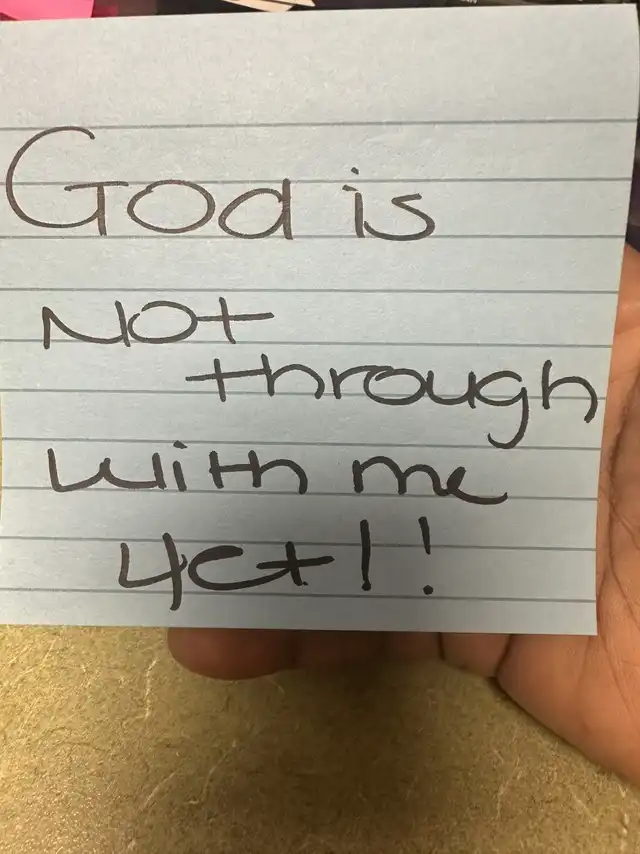 God is
Not
through
with me
yet!!